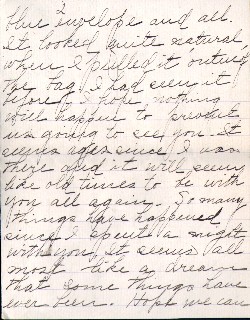 2
blue envelope and all.
It looked quite natural
when I pulled it out of
the bag. I had seen it
before. I hope nothing
will happen to prevent
us going to see you. It
seems ages since I was
there and it will seem
like old times to be with
you all again. So many
things have happened
since I spent a night
with you. It seems all
most like a dream
that some things have
ever been. Hope we can